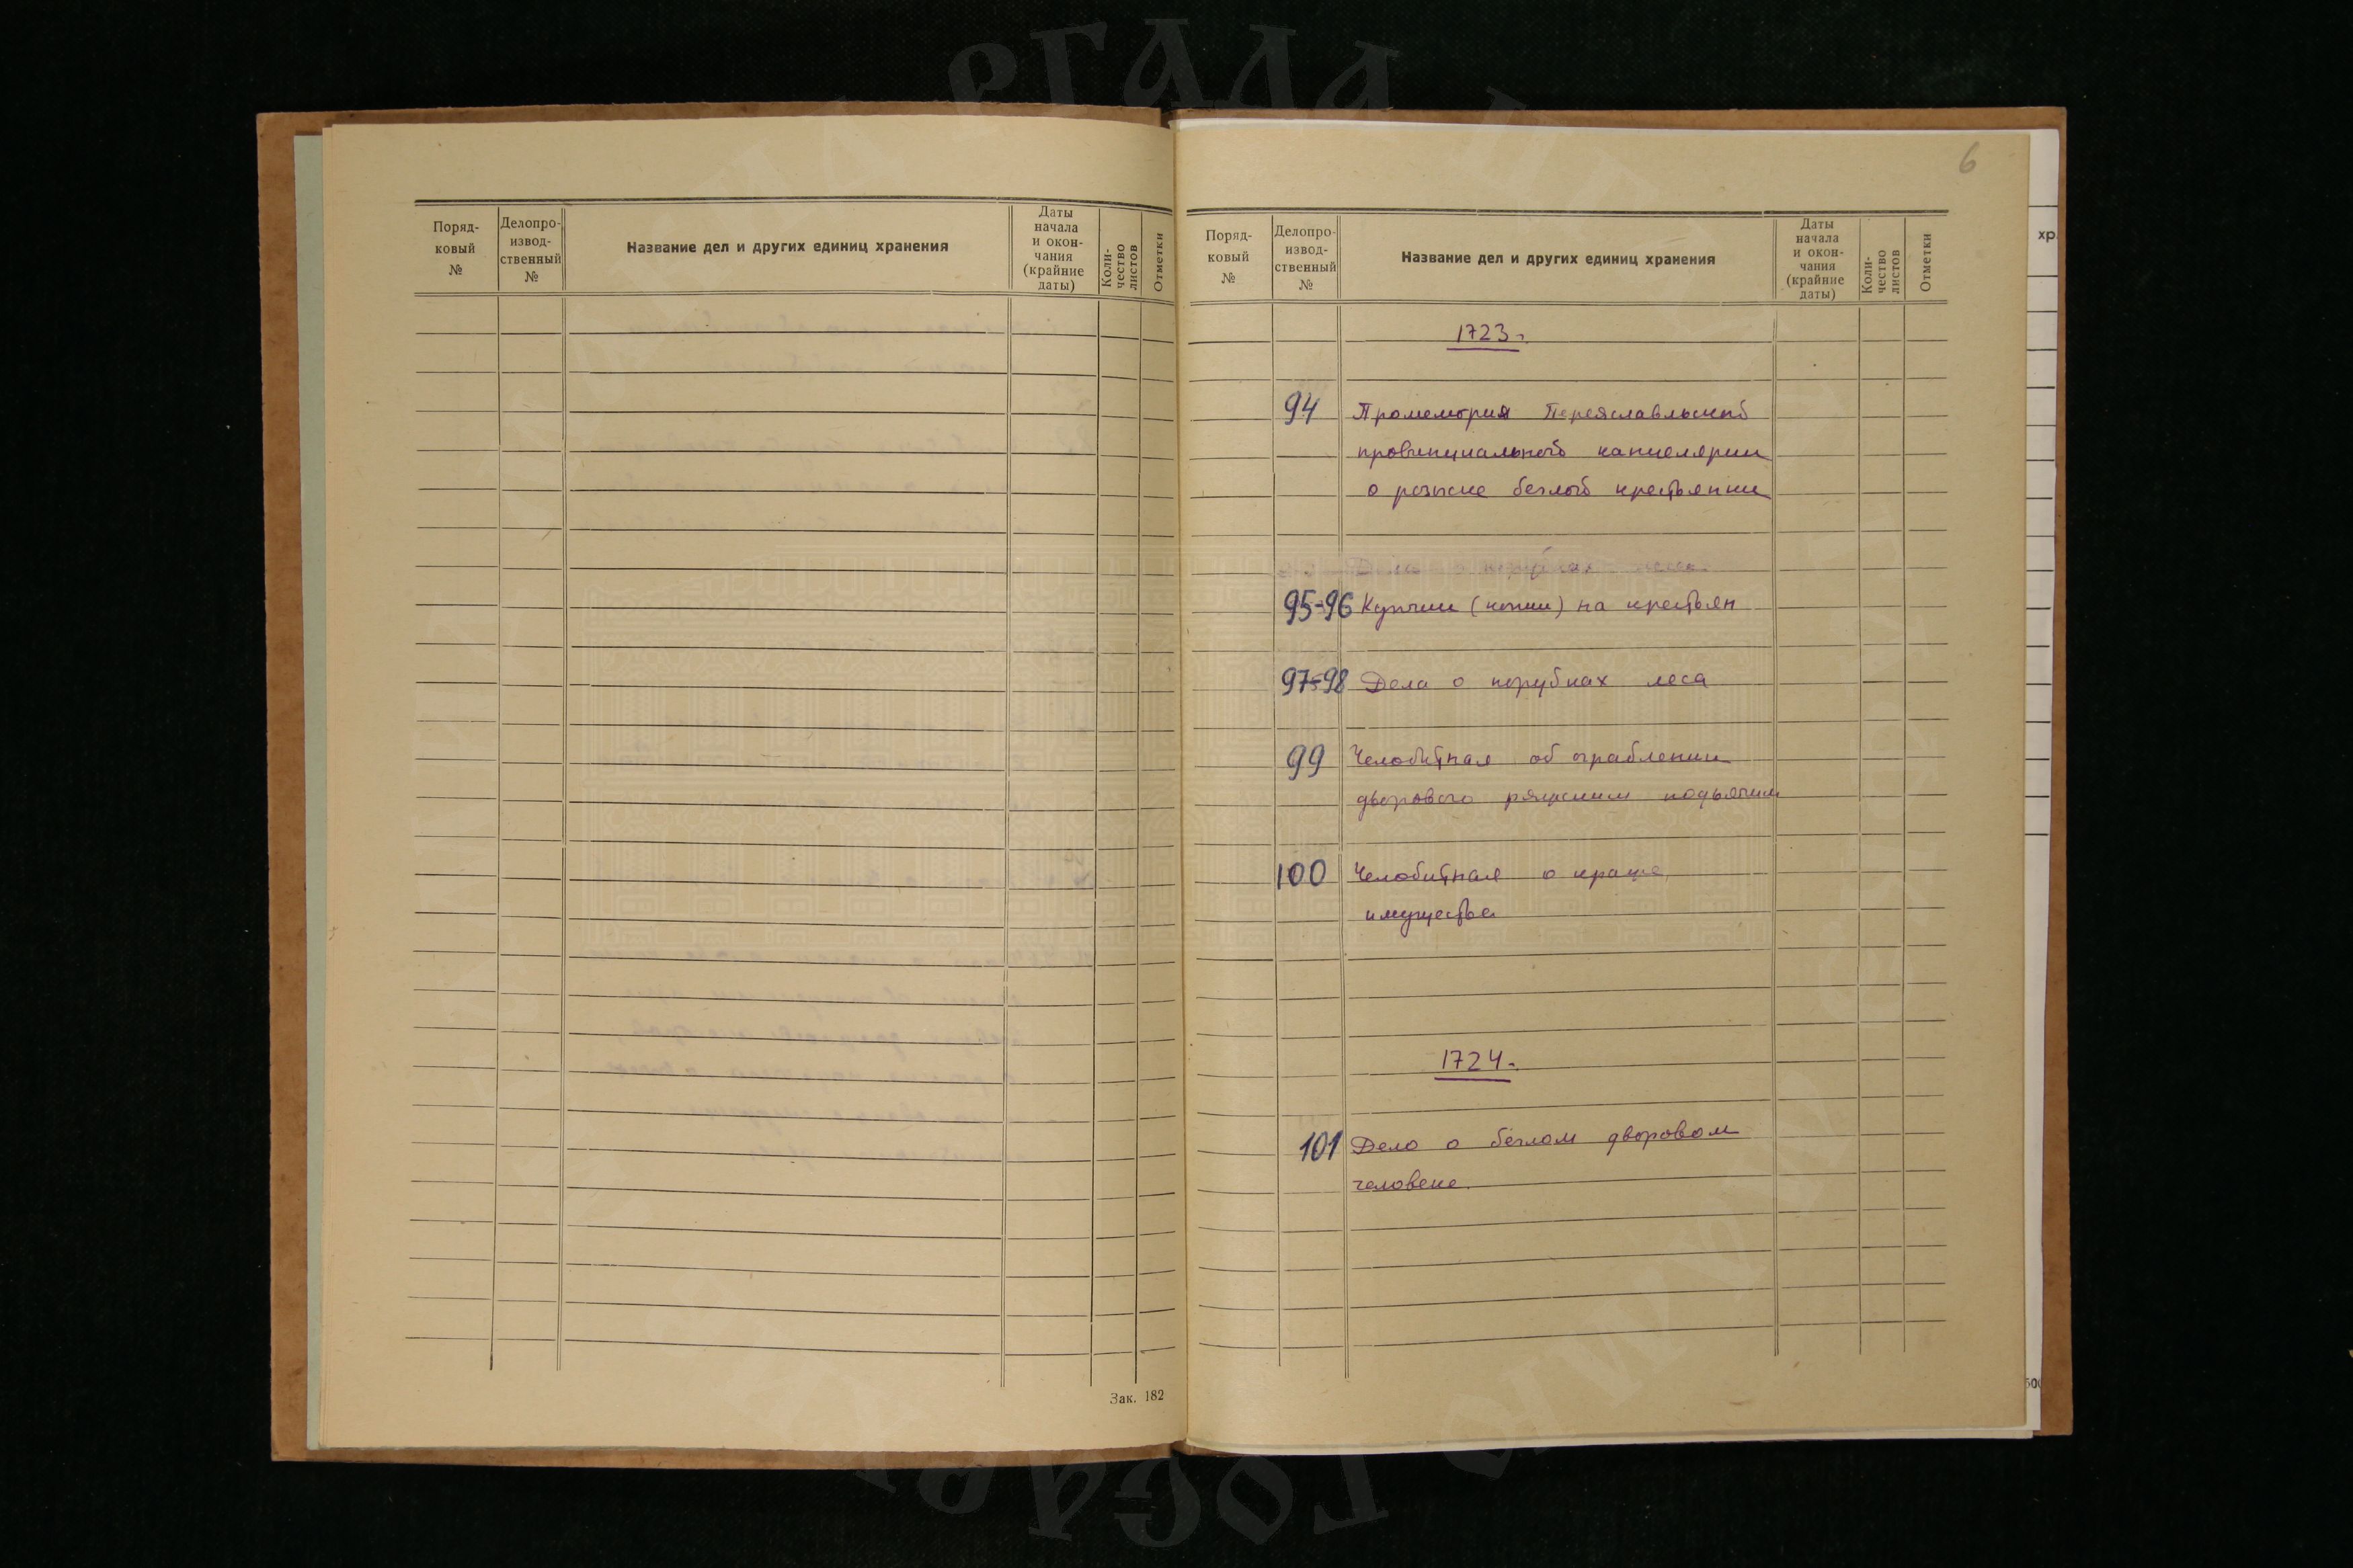 Поряд-
ковый
№
Делопро-
извод-
ственный
№
Название дел и других единиц хранения
Даты
начала
и окон-
чания
(крайние
даты)
Коли-
чество
листов
Отметки
Зак. 182
6
Поряд-
ковый
№
Делопро-
извод-
ственный
№
Название дел и других единиц хранения
Даты
начала
и окон-
чания
(крайние
даты)
Коли-
чество
листов
Отметки
1723 г.
94 Промемория Переяславльской
провинциальной канцелярии
о розыске беглой крестьянки
95-96 Купчии (копии) на крестьян
97-98 Дела о порубках леса
99 Челобитная об ограблении
дворового ряжским подьячим
100 Челобитная о краже
имущества
1724 г.
101 Дело о беглом дворовом
человеке.
хр.